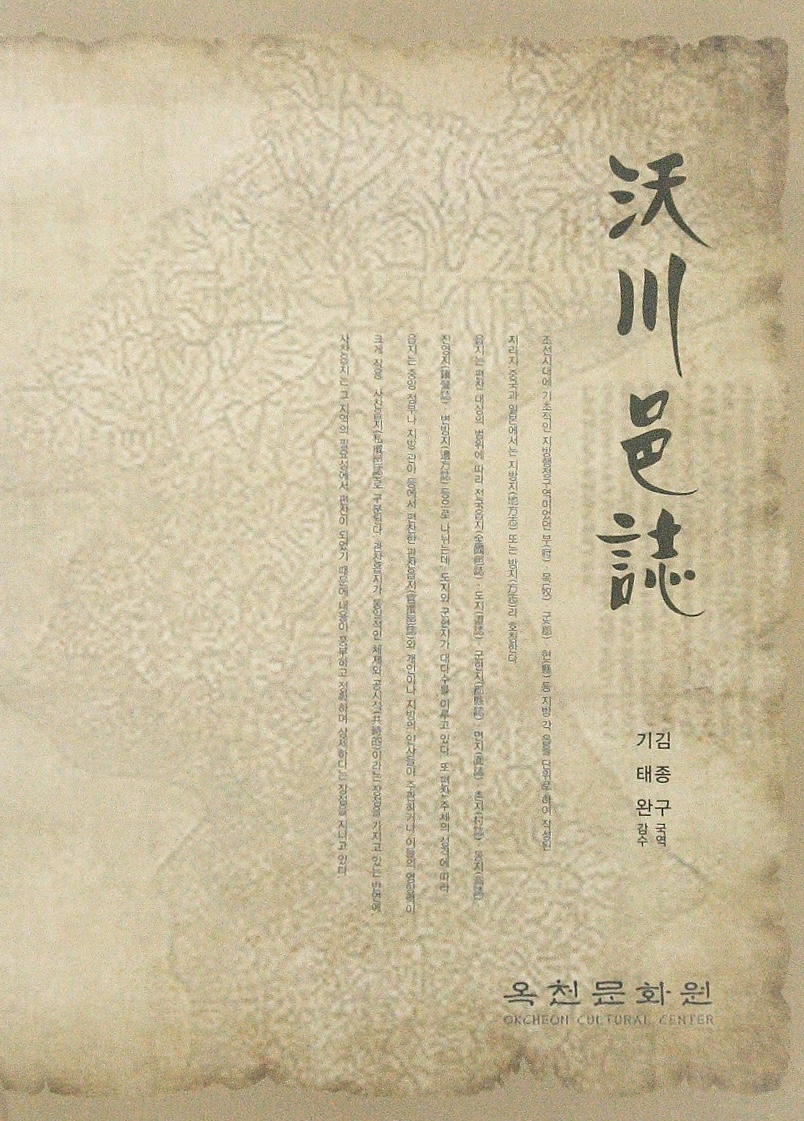 沃川邑誌
김종구 국역
기태완 감수
조선시대에 기초적인 지방행정구역이었던 부(府)·목(牧)·군(郡)·현(縣) 등 지방 각 읍을 단위로 하여 작성된
지리지. 중국과 일본에서는 지방지(地方志) 또는 방지(方志)라 호칭한다.
읍지는 편찬 대상의 범위에 따라 전국읍지(全國邑誌)·도지(道誌)·군현지(郡縣誌)·면지(面誌)·촌지(村誌)·동지(洞誌)·
진영지(鎭營誌)·변방지(邊方誌) 등으로 나뉘는데 도지와 군현지가 대다수를 이루고 있다. 또 편찬 주체의 성격에 따라
읍지는 중앙 정부나 지방 관아 등에서 편찬한 관찬읍지(官撰邑誌)와 개인이나 지방의 인사들이 주관하거나 이들의 영향력이
크게 작용 사찬읍지(私撰邑誌)로 구분된다. 관찬읍지가 통일적인 체제와 공시적(共時的)이라는 장점을 가지고 있는 반면에
사찬읍지는 그 지역의 필요성에서 편찬이 되었기 때문에 내용이 풍부하고 정확하며 상세하다는 장점을 지니고 있다.
옥천문화원
OKCHEON CULTURAL CENTER